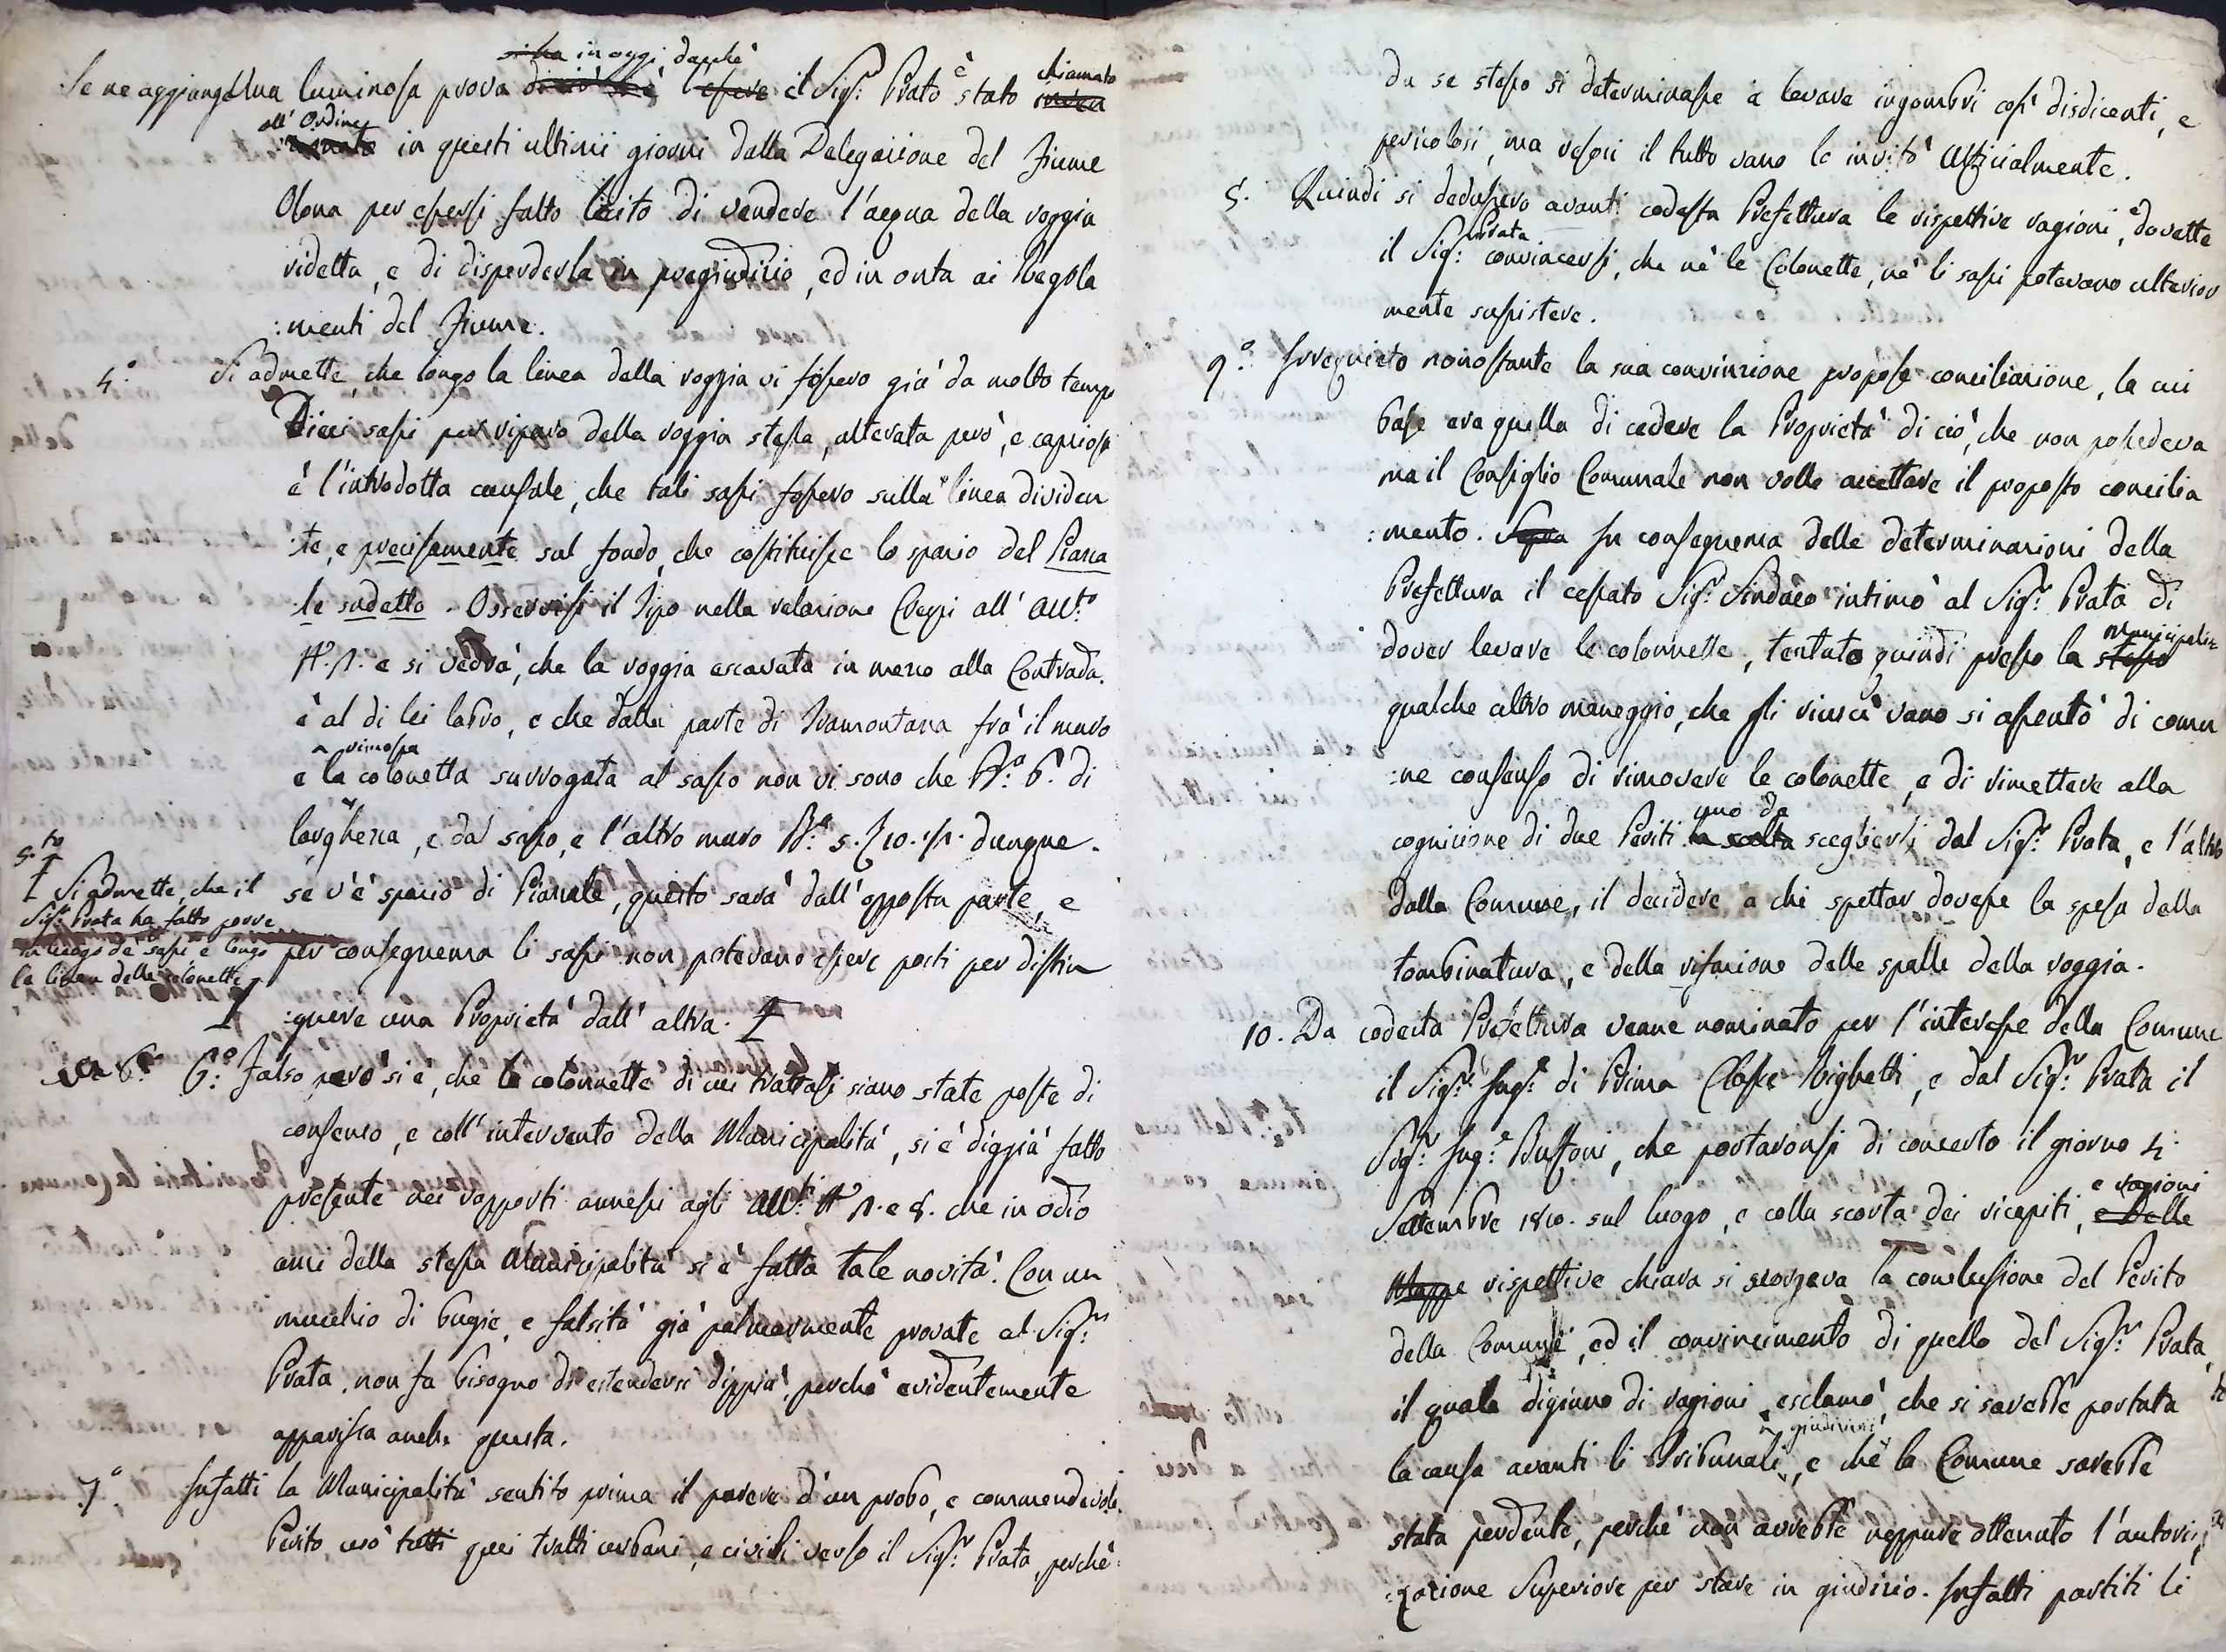 si ha in oggi, dacchè
Se ne aggiunge Una luminosa prova di ciò che è l'essere il Sig.r Prato è stato chiamato
all'Ordine in questi ultimi giorni dalla Delegazione del Fiume
Olona per essersi fatto lecito di vendere l'acqua della roggia
ridetta, e di disperderla in pregiudizio, ed in onta ai Regola
:menti del Fiume.
4.° Si admette, che longo la linea della roggia vi fossero già da molto tempo
Dieci sassi per riparo della roggia stessa, alterata però, e capriosa
è l'introdotta causale, che tali sassi fossero sulla linea dividen
:te, e precisamente sul fondo, che costituisse lo spazio del Piazza
le sudetto. Osservisi il Tipo nella relazione Crespi all' All.to
N.° 1. e si vedrà, che la roggia escavata in mezzo alla Contrada.
è al di lei labro, e che dalla parte di Tramontana frà il muro
e la rimossa colonetta surrogata al sasso non vi sono che B.a 6. di
larghezza, e dal sasso, e l'altro muro B.a 5. 10. 1. dunque.
se v'è spazio di Piazzale, questo sarà dall'opposta parte, e
per conseguenza li sassi non potevano essere posti per distin
:guere una Proprietà dall' altra.
5.to
Si admette, che il
Sig.r Prata ha fatto porre
in luogo de' sassi e longo
la linea delle colonette
6.° Falso però si è, che le colonnette di cui trattasi siano state poste di
consenso, e coll'intervento della Municipalità, si è diggià fatto
presente nei rapporti annessi agli All.ti N.° 1. e 8. che in odio
anzi della stessa Municipalità si è fatta tale novità. Con un
mucchio di bugie, e falsità già palmarmente provate al Sig.r
Prata, non fa bisogno di estendersi dippiù, perchè evidentemente
apparisca anche questa.
7.° Infatti la Municipalità sentito prima il parere d'un probo, e commendevole
Perito usò tutti quei tratti urbani, e civili verso il Sig.r Prata, perchè
da se stesso si determinasse a levare ingombri così disdicenti, e
pericolosi, ma resosi il tutto vano lo invitò Uffizialmente.
8. Quindi si dedussero avanti codesta Prefettura le rispettive ragioni, e dovette
il Sig.r Prata convincersi, che nè le Colonette, nè li sassi potevano ulterior
mente sussistere.
9.° Irrequieto nonostante la sua convinzione propose conciliazione, la cui
base era quella di cedere la Proprietà di ciò, che non possedeva
ma il Consiglio Comunale non volle accettare il proposto concilia
:mento. In conseguenza delle determinazioni della
Prefettura il cessato Sig.r Sindaco intimò al Sig.r Prata di
dover levare le colonnette, tentato quindi presso la stessa Municipalità
qualche altro maneggio, che gli riuscì vano si assentò di comu
:ne consenso di rimovere le colonette, e di rimettere alla
cognizione di due Periti la scelta uno da scegliersi dal Sig.r Prata, e l'altro
dalla Comune, il decidere a chi spettar dovesse la spesa della
tombinatura, e della rifazione delle spalle della roggia.
10. Da codesta Prefettura venne nominato per l'interesse della Comune
il Sig.r Ing.e di Prima Classe Righetti, e dal Sig.r Prata il
Sig.r Ing.e Bussoni, che portaronsi di concerto il giorno 4.
Settembre 1810. sul luogo, e colla scorta dei ricapiti, e ragioni e delle
Mappe rispettive chiara si scorgeva la conclusione del Perito
della Comune, ed il convincimento di quello del Sig.r Prata,
il quale digiuno di ragioni esclamò, che si sarebbe portata
la causa avanti li Tribunali giudiziarj, e che la Comune sarebbe
stata perdente, perchè non avrebbe neppure ottenuto l'autoriz
:zazione Superiore per stare in giudizio. Infatti partiti li